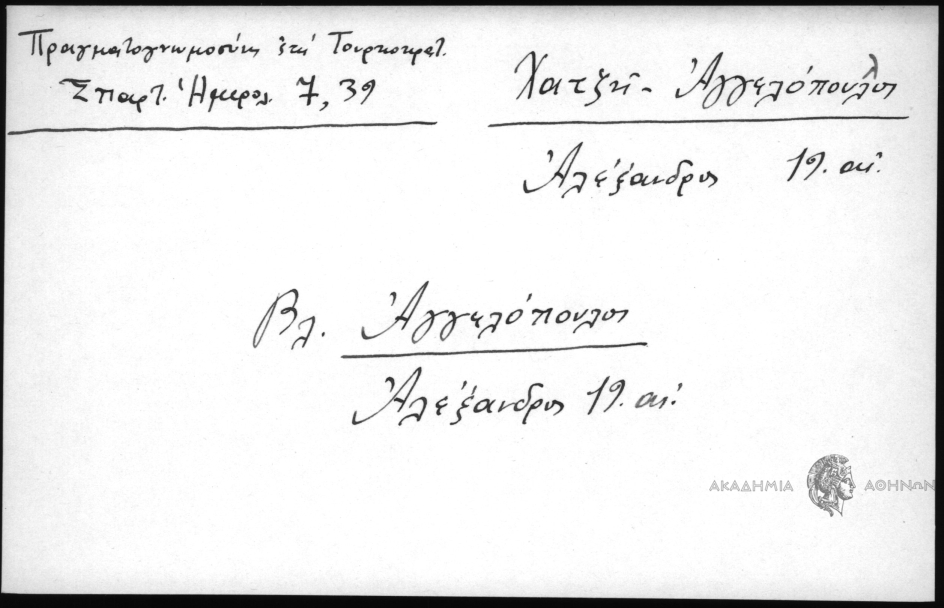 Πραγματογνωμοσύνη ἐπί Τουρκοκρατ.
Σπαρτ. Ἡμερολ. 7, 39
Χατζῆ - Ἀγγελόπουλος
Ἀλέξανδρος 19. αἰ.
Βλ. Ἀγγελόπουλος
Ἀλέξανδρος 19. αἰ.
ΑΚΑΔΗΜΙΑ ΑΘΗΝΩΝ